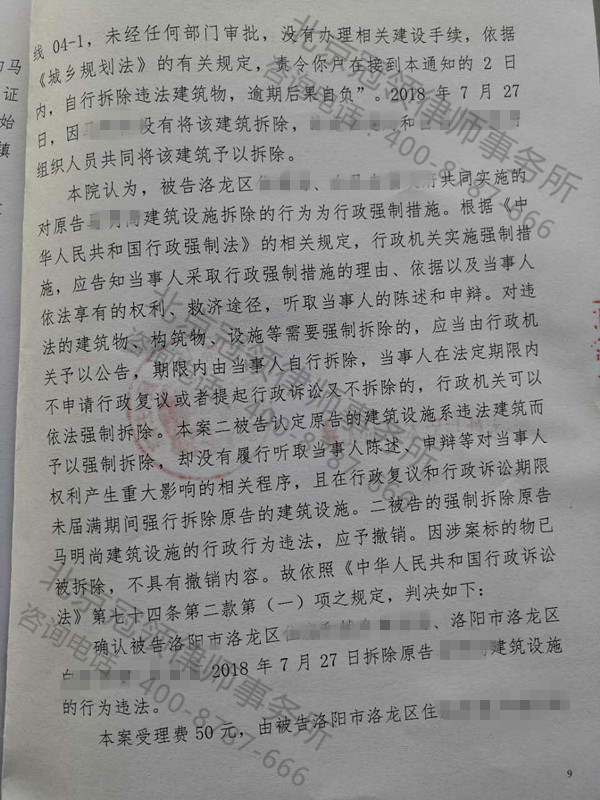 线 04-1，未经任何部门审批，没有办理相关建设手续，依据
《城乡规划法》的有关规定，责令你户在接到本通知的 2 日
内，自行拆除违法建筑物，逾期后果自负”。2018 年 7 月 27
日，因 没有将该建筑拆除， 和
组织人员共同将该建筑予以拆除。
本院认为，被告洛龙区 、 共同实施的
对原告 建筑设施拆除的行为为行政强制措施。根据《中
华人民共和国行政强制法》的相关规定，行政机关实施强制措
施，应告知当事人采取行政强制措施的理由、依据以及当事人
依法享有的权利、救济途径，听取当事人的陈述和申辩。对违
法的建筑物、构筑物、设施等需要强制拆除的，应当由行政机
关予以公告，期限内由当事人自行拆除，当事人在法定期限内
不申请行政复议或者提起行政诉讼又不拆除的，行政机关可以
依法强制拆除。本案二被告认定原告的建筑设施系违法建筑而
予以强制拆除，却没有履行听取当事人陈述、申辩等对当事人
权利产生重大影响的相关程序，且在行政复议和行政诉讼期限
未届满期间强行拆除原告的建筑设施。二被告的强制拆除原告
马明尚建筑设施的行政行为违法，应予撤销。因涉案标的物已
被拆除，不具有撤销内容。故依照《中华人民共和国行政诉讼
法》第七十四条第二款第（一）项之规定，判决如下：
确认被告洛阳市洛龙区 、洛阳市洛龙区
2018 年 7 月 27 日拆除原告 建筑设施
的行为违法。
本案受理费 50 元，由被告洛阳市洛龙区住
9
马
证
始
镇
北京冠领律师事务所
咨询电话：400-8787-666
北京冠领律师事务所
咨询电话：400-8787-666
北京冠领律师事务所
咨询电话：400-8787-666